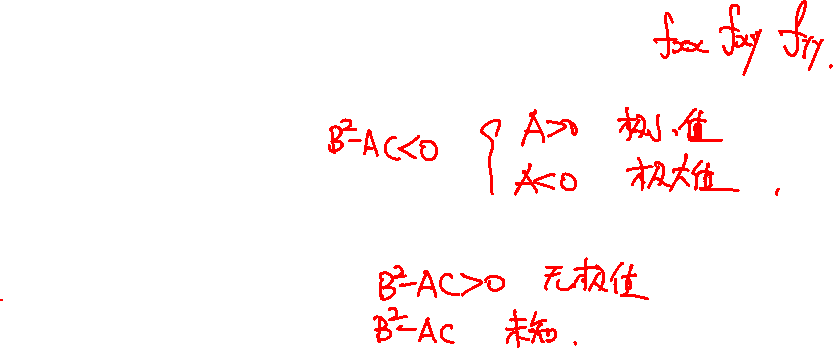 fxx fxy fyy.
B²-AC<0 { A>0 极小值
A<0 极大值.
B²-AC>0 无极值
B²-AC 未知.